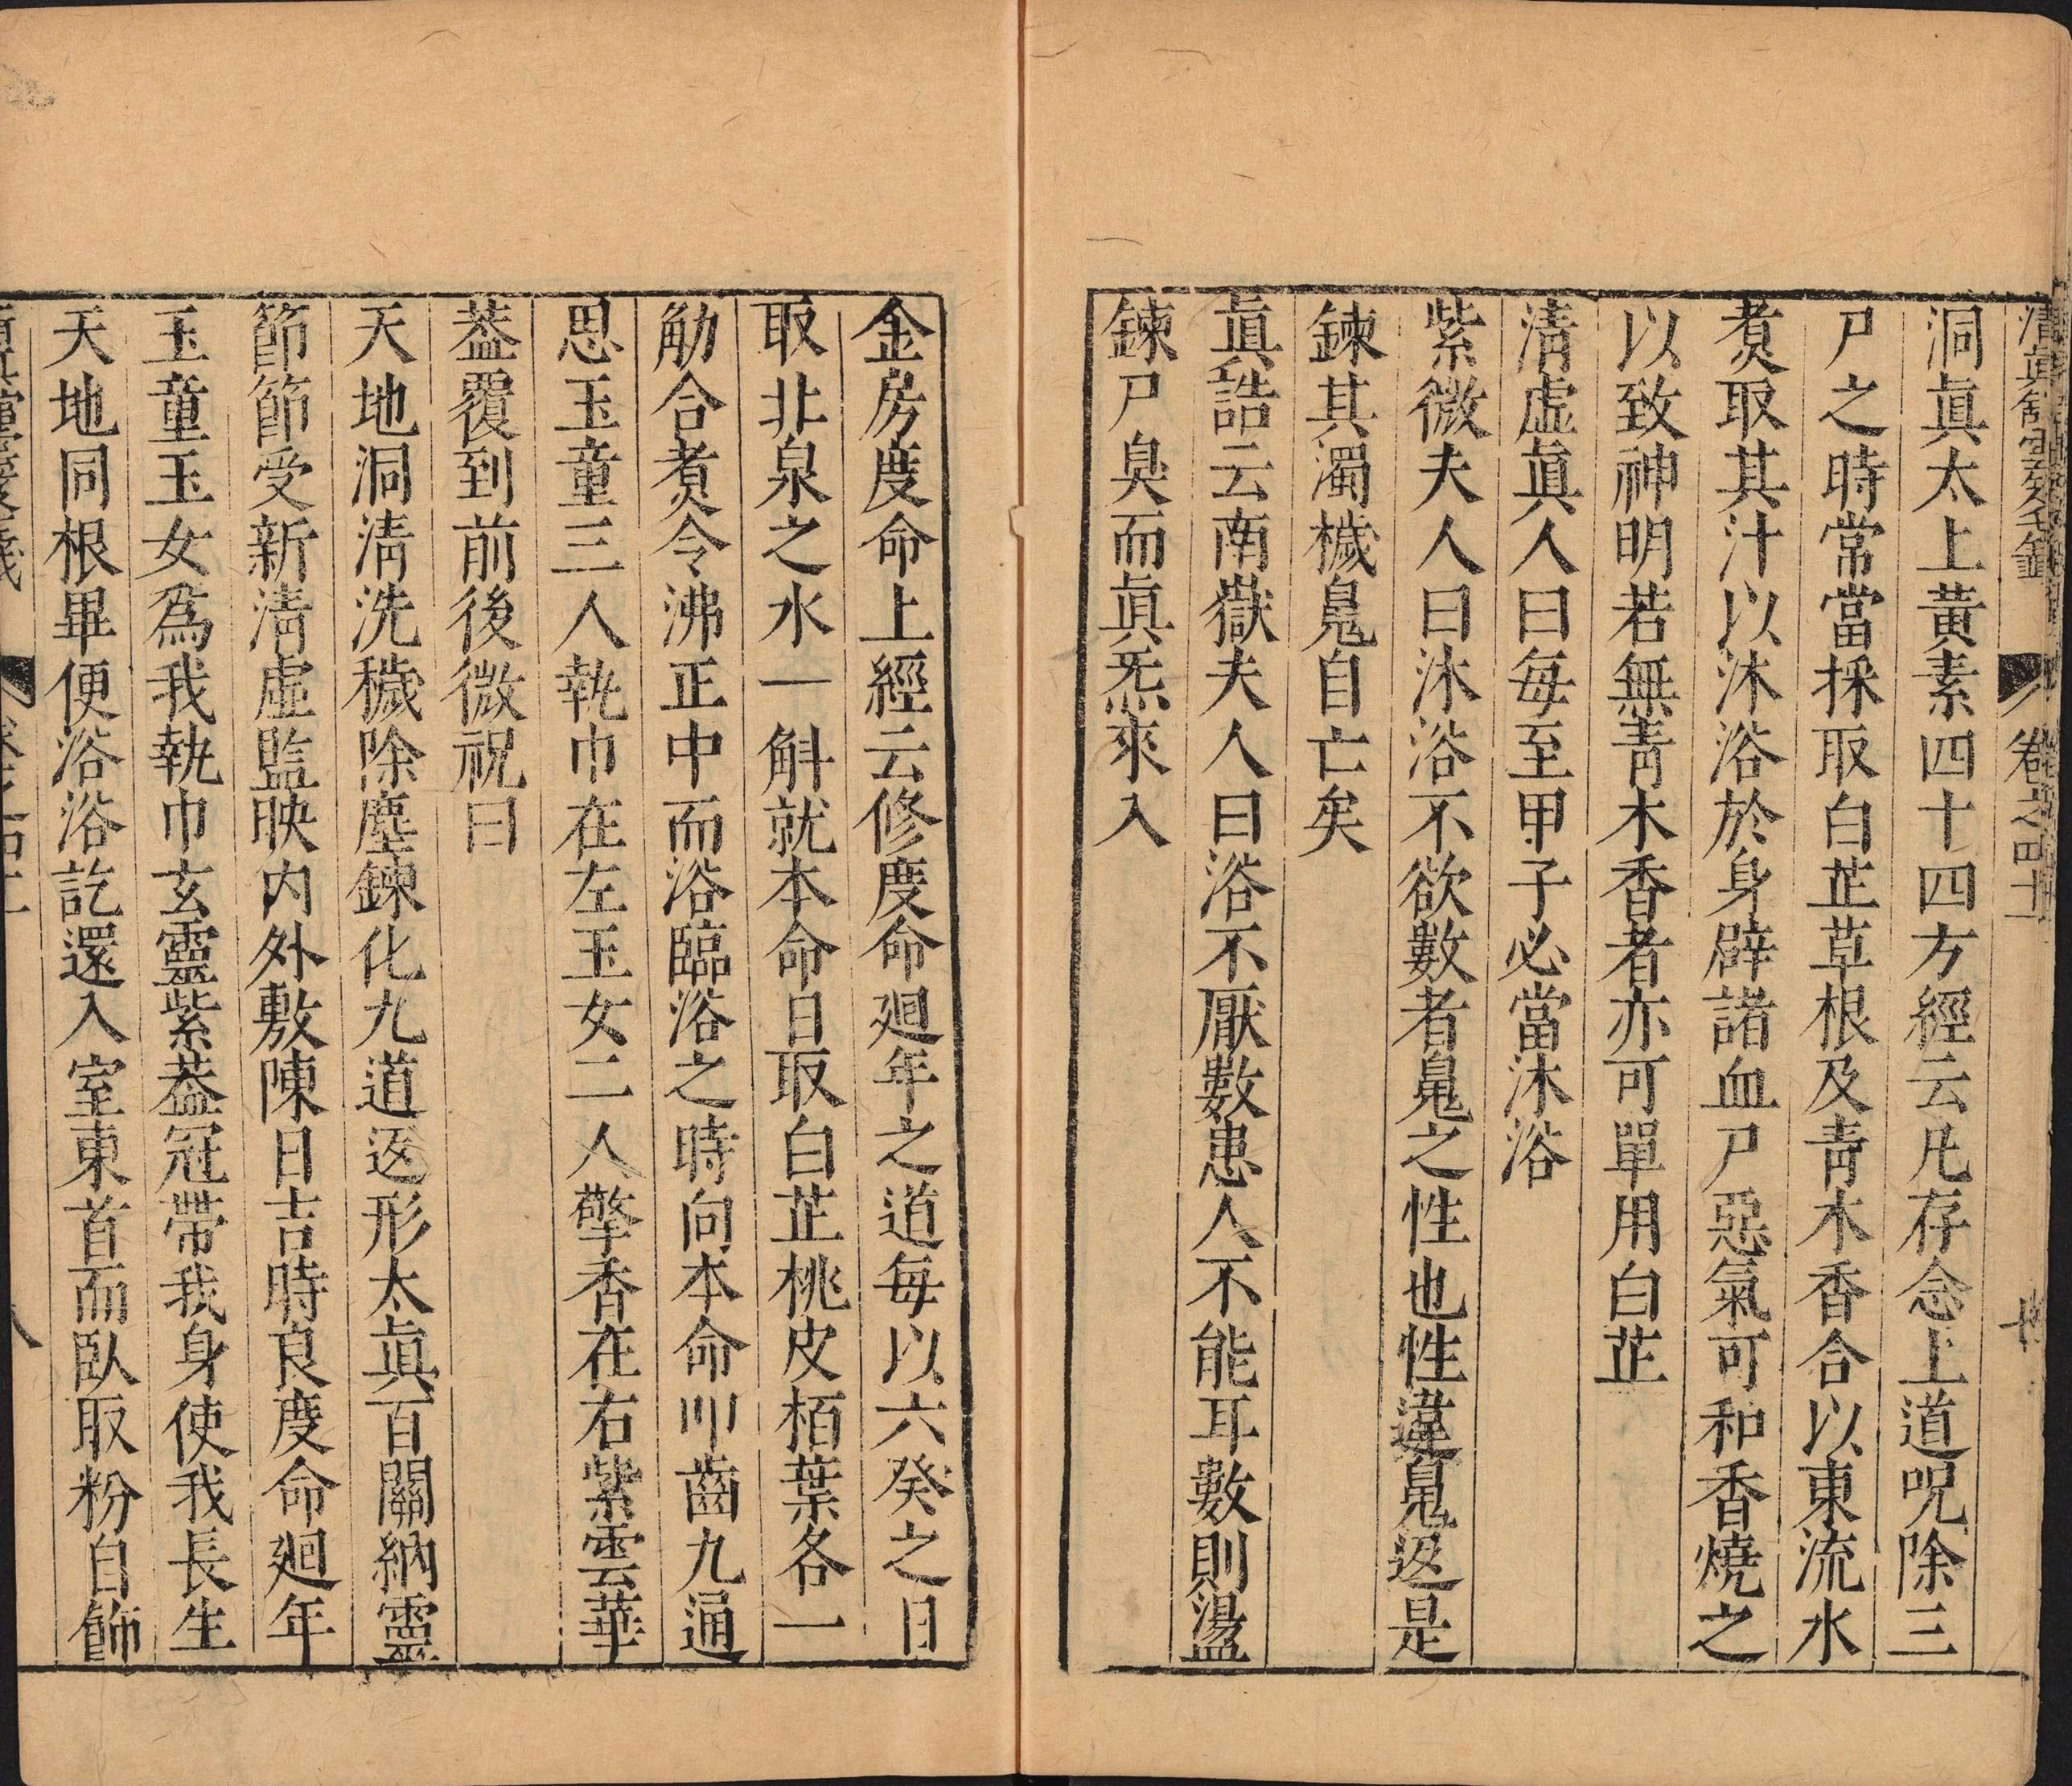 卷之四十
洞眞太上黃素四十四方經云凡存念上道呪除三
尸之時常當採取白芷草根及靑木香合以東流水
煑取其汁以沐浴於身辟諸血尸惡氣可和香燒之
以致神明若無靑木香者亦可單用白芷
淸虛眞人曰每至甲子必當沐浴
紫微夫人曰沐浴不欲數者䰟之性也性違䰟返是
鍊其濁穢䰟自亡矣
眞誥云南嶽夫人曰浴不厭數患人不能耳數則盪
鍊尸臭而眞炁來入
金房度命上經云修度命廻年之道每以六癸之日
取北泉之水一斛就本命日取白芷桃皮栢葉各一
觔合煑令沸正中而浴臨浴之時向本命叩齒九通
思玉童三人執巾在左玉女二人擎香在右紫雲華
葢覆到前後微祝曰
天地洞淸洗穢除塵鍊化九道返形太眞百關納靈
節節受新淸虛監映內外敷陳日吉時良度命廻年
玉童玉女爲我執巾玄靈紫葢冠帶我身使我長生
天地同根畢便浴浴訖還入室東首而臥取粉自飾
八